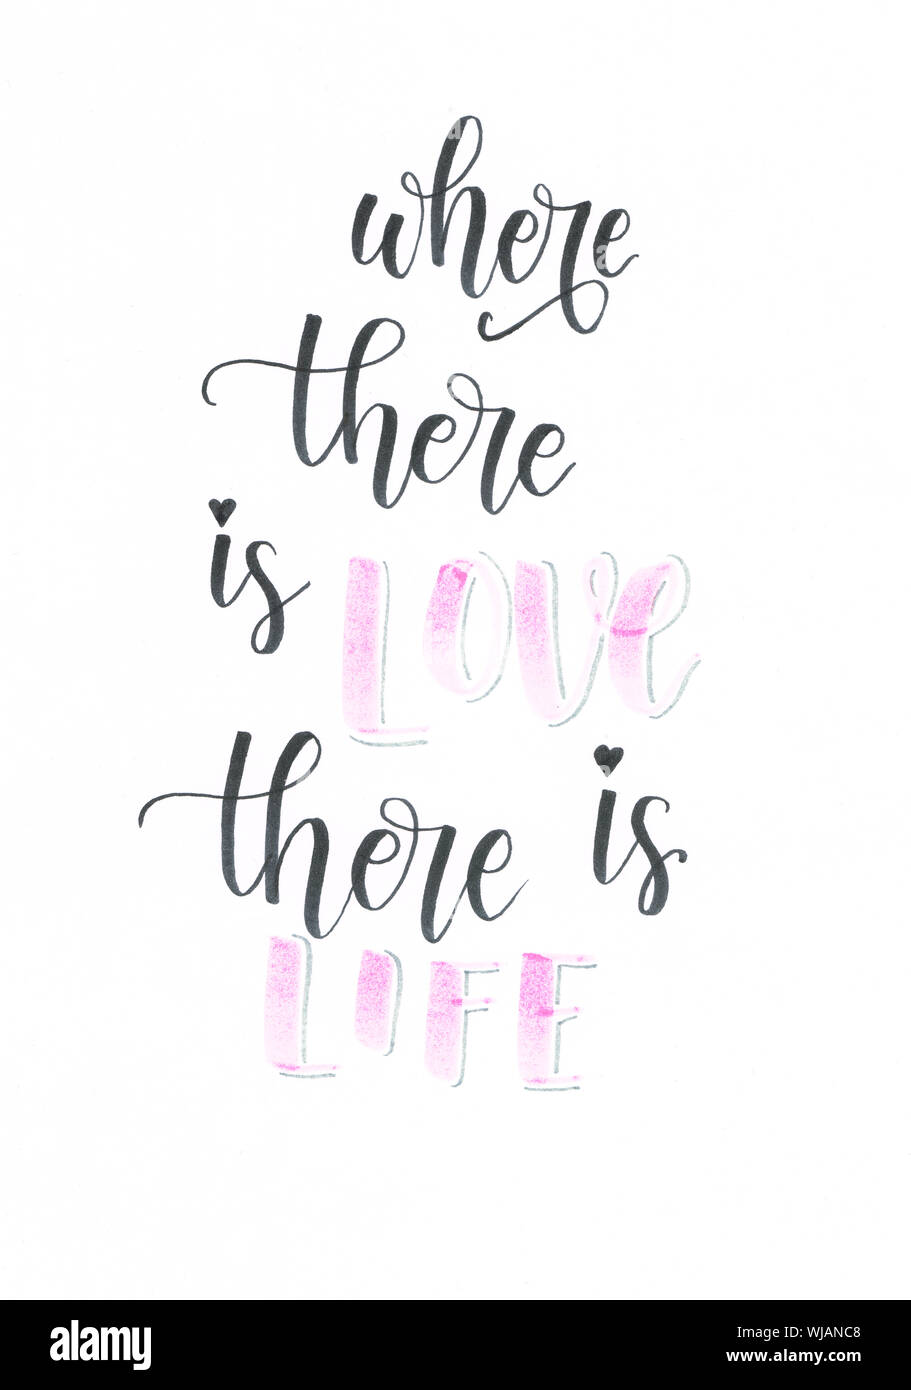 where
there
is LOVe
there is
LIFE
alamy
Image ID: WJANC8
www.alamy.com